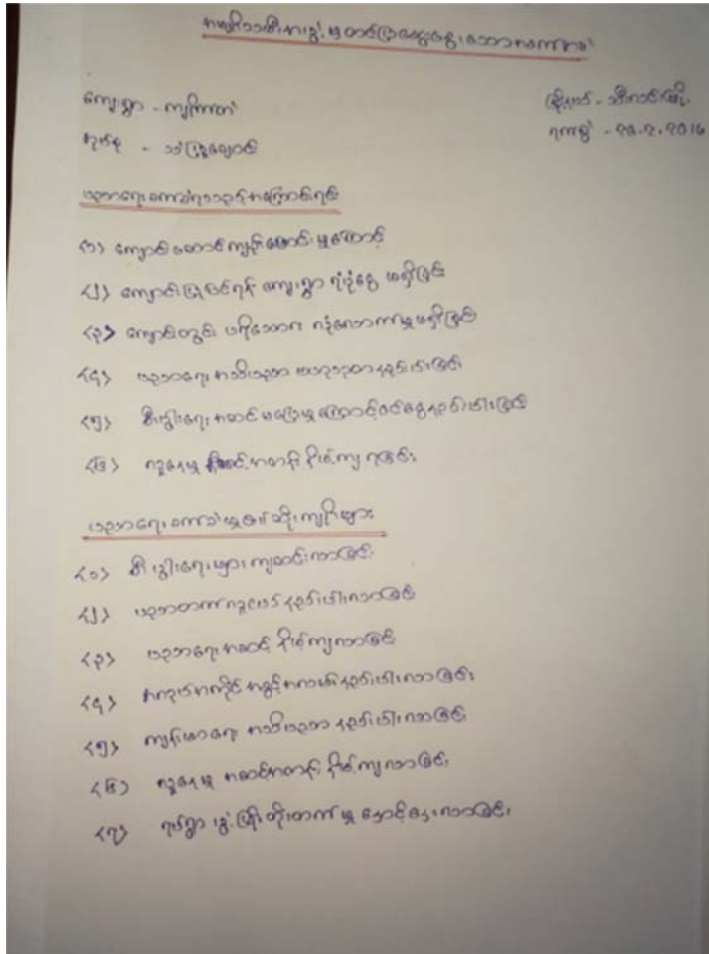 အမျိုးသမီးအဖွဲ့မှ တင်ပြဆွေးနွေးသော
ကျေးရွာ -
မြို့နယ် -
အုပ်စု - သံဖြူချောင်း
ရက်စွဲ - ၂၈.၇.2016
ပညာရေးခက်ခဲရသည့်အကြောင်းရင်း
(၁) ကျောင်းဆောင်ကျဉ်းမြောင်းမှုကြောင့်
(၂) ကျောင်းပြုပြင်ရန် ကျေးရွာ ရံပုံငွေ မရှိခြင်း
(၃) ကျောင်းတွင် ပရိဘောဂ လုံလောက်မှုမရှိခြင်း
(၄) ပညာရေး အသိပညာ ဗဟုသုတနည်းပါးခြင်း
(၅) စီးပွါးရေး အဆင်မပြေမှုကြောင့်ဝင်ငွေနည်းပါးခြင်း
(၆) လူနေမှု အဆင့်အတန်း နိမ့်ကျ ရခြင်း
ပညာရေးခက်ခဲမှုဆိုးကျိုးများ
(၁) စီးပွါးရေးများ ကျဆင်းလာခြင်း
(၂) ပညာတတ်လူငယ် နည်းပါးလာခြင်း
(၃) ပညာရေးအဆင့် နိမ့်ကျလာခြင်း
(၄) အလုပ်အကိုင် အခွင့်အလမ်းနည်းပါးလာခြင်း
(၅) ကျန်းမာရေး အသိပညာ နည်းပါးလာခြင်း
(၆) လူနေမှု အဆင့်အတန်း နိမ့်ကျလာခြင်း
(၇) ရပ်ရွာ ဖွံ့ဖြိုးတိုးတက်မှု နှောင့်နှေးလာခြင်း